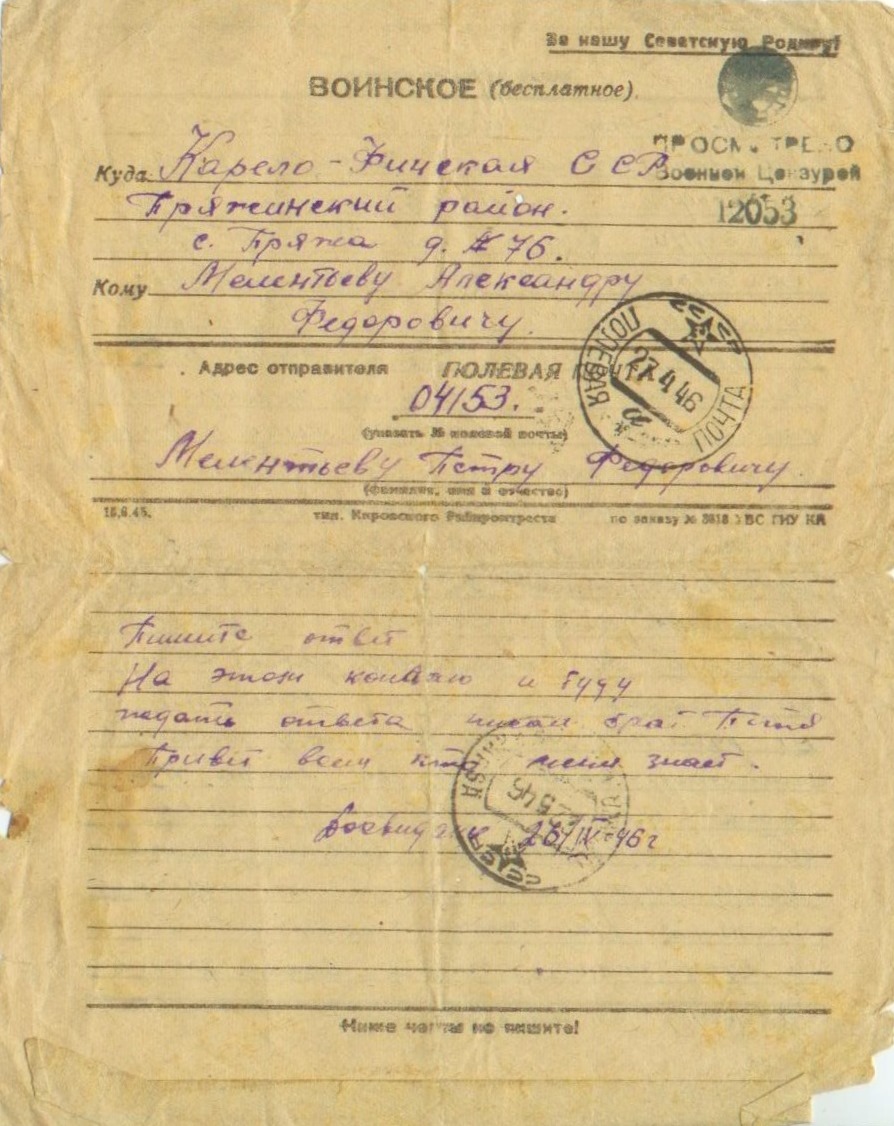 За нашу Советскую Родину!
ВОИНСКОЕ (бесплатное).
ПРОСМОТРЕНО
Военной Цензурой
12053
Куда Карело-Финская ССР
Пряжинский район.
с. Пряжа д. № 76.
Кому Мелентьеву Александру
Федоровичу.
Адрес отправителя ПОЛЕВАЯ ПОЧТА
04153.
(указать № полевой почты)
ПОЛЕВАЯ ПОЧТА
СССР
27 4 46
а
Мелентьеву Петру Федоровичу.
(фамилия, имя и отчество)
тип. Кировского Райпромтреста
по заказу № 3618 УВС ГИУ КА
Пишите ответ
На этом кончаю и буду
ждать ответа писал брат Петя
Привет всем кто меня знает.
СССР
5 46
Досвидание 26/IV-46 г
Ниже черты не пишите!